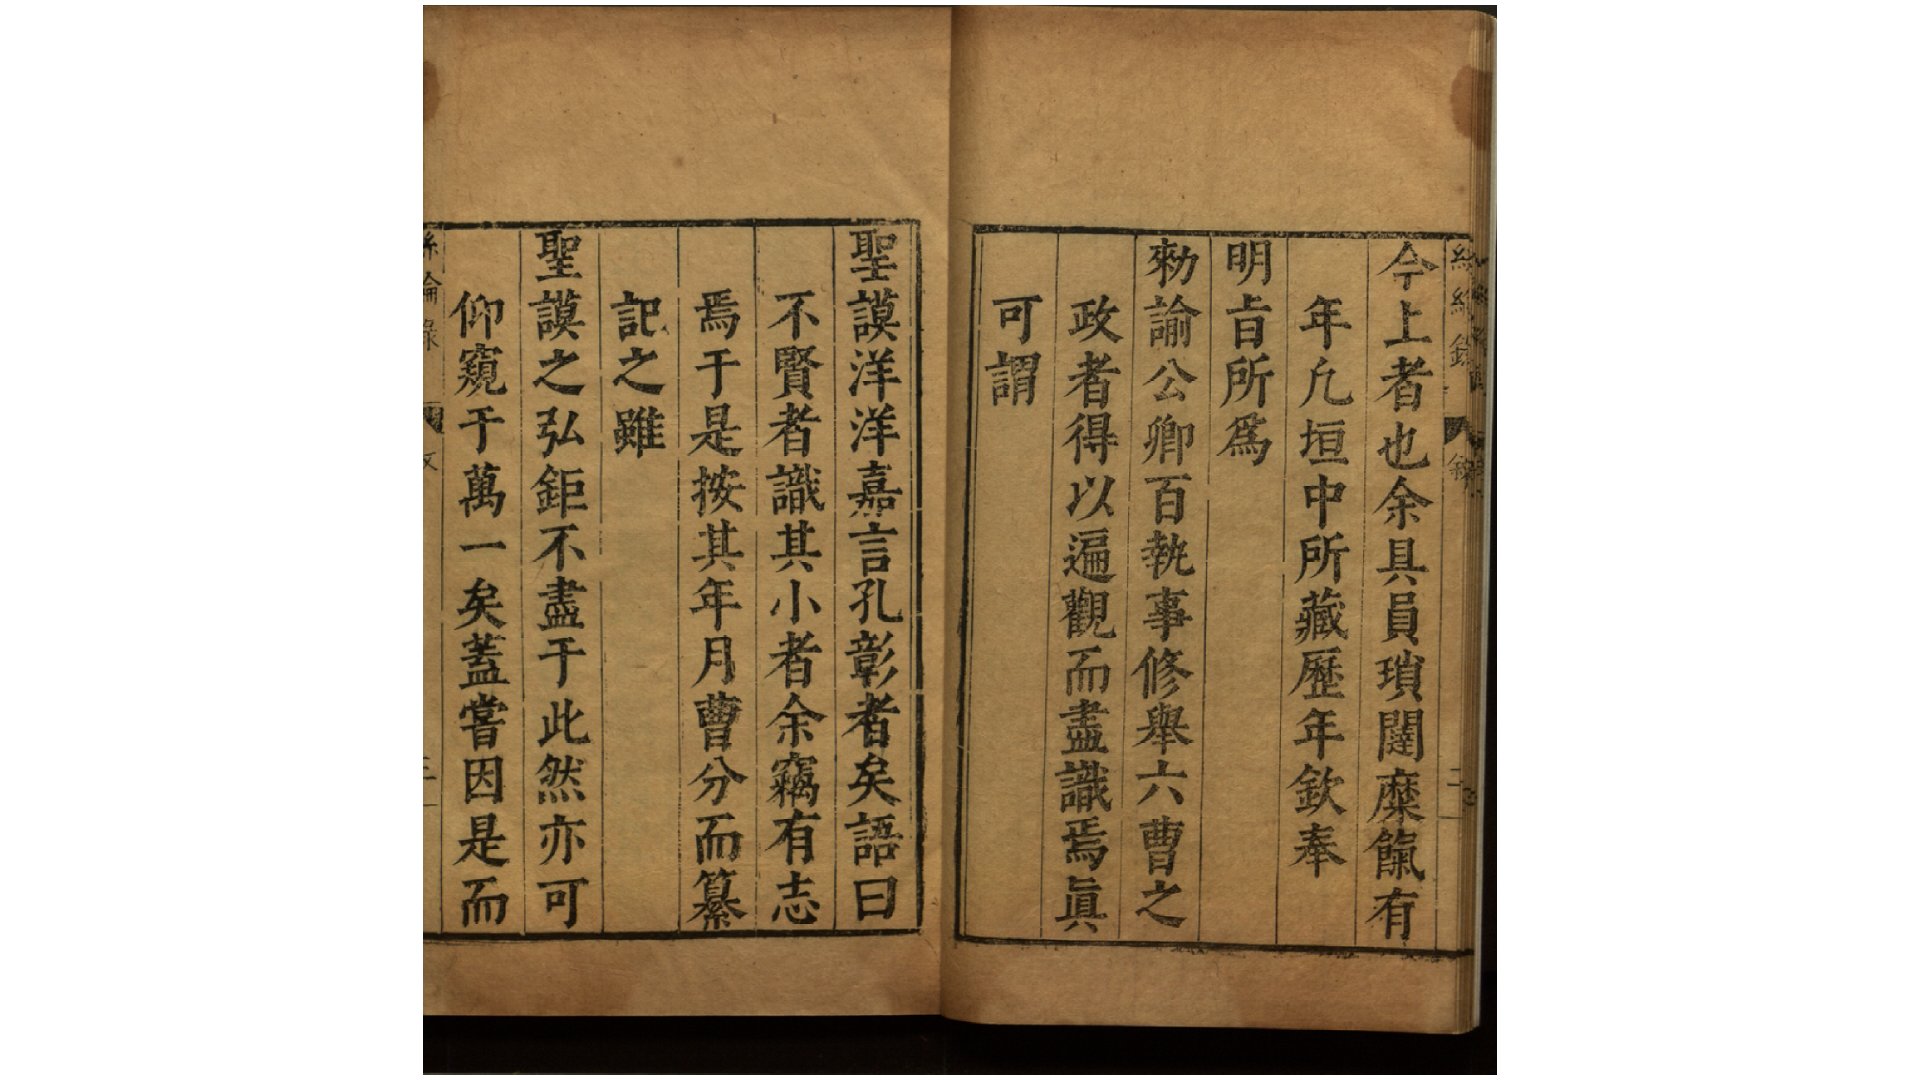 今上者也余具員瑣闥糜餼有
年凣垣中所藏歷年欽奉
明㫖所爲
勑諭公卿百執事修舉六曹之
政者得以遍觀而盡識焉眞
可謂
聖謨洋洋嘉言孔彰者矣語曰
不賢者識其小者余竊有志
焉于是按其年月曹分而纂
記之雖
聖謨之弘鉅不盡于此然亦可
仰窺于萬一矣蓋嘗因是而
絲綸錄